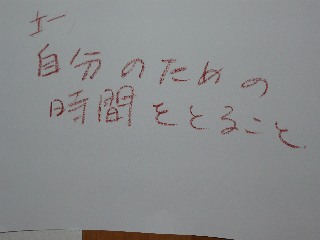 エー
自分のための
時間をとること